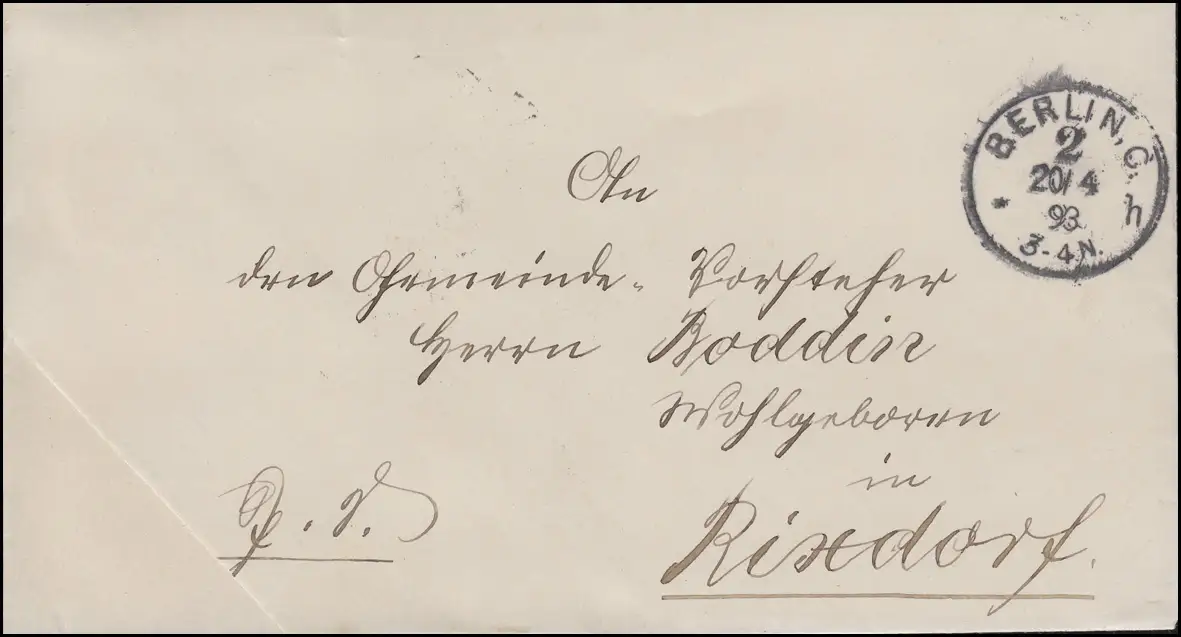 BERLIN, C.
2
20/4
93
* h
3-4N.
An
den Gemeinde-Vorsteher
Herrn Boddin
Wohlgeboren
in
Rixdorf.